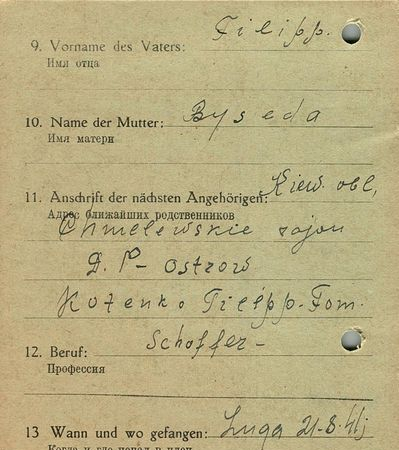 9. Vorname des Vaters: Filipp.
Имя отца
10. Name der Mutter: Byseda
Имя матери
11. Anschrift der nächsten Angehörigen: Kiew. obl,
Адрес ближайших родственников
Chmelewskie rajon
D. P- ostrow
Kotenko Filipp-Fom.
12. Beruf: Schoffer-
Профессия
13 Wann und wo gefangen: Luga 21-8.41j
Когда и где попал в плен